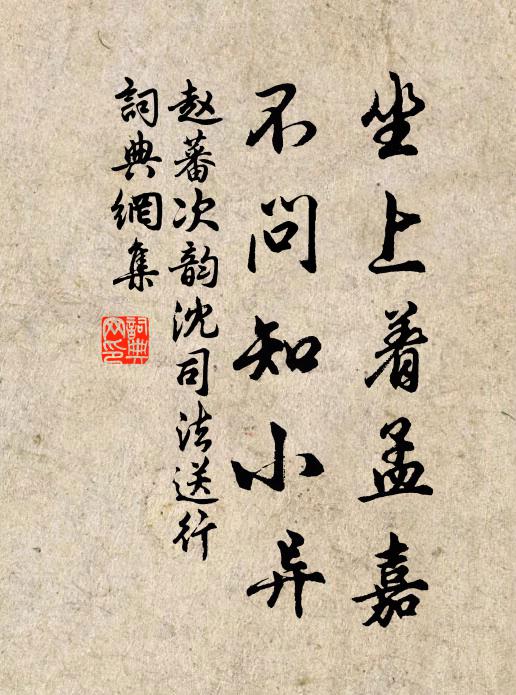 坐上着孟嘉
不问知小异
赵蕃次韵沈司法送行
詞典網集
詞典网印